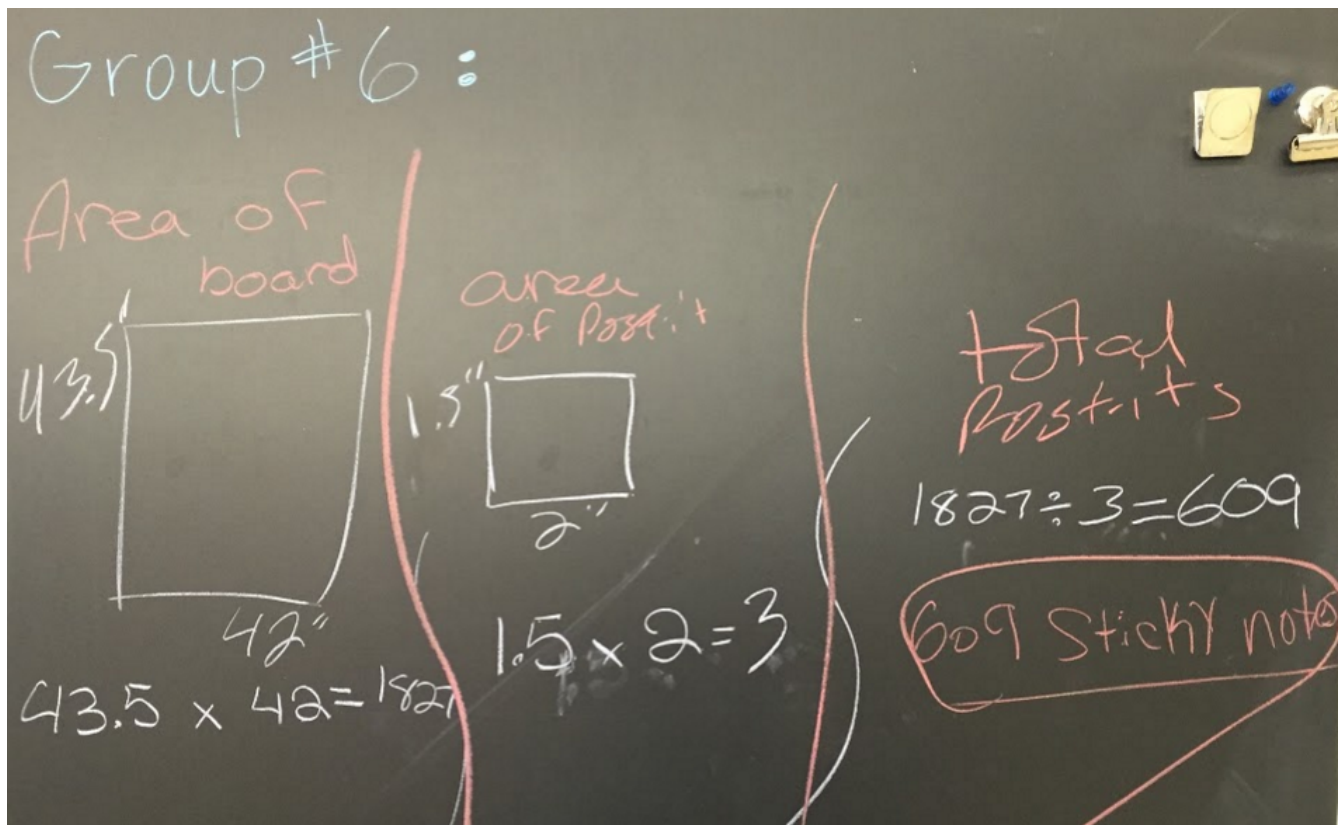 Group #6:
Area of
board
43.5"
42"
43.5 x 42=1827
area
of Post-it
1.5"
2"
1.5 x 2=3
total
Post-its
1827÷3=609
609 Sticky note